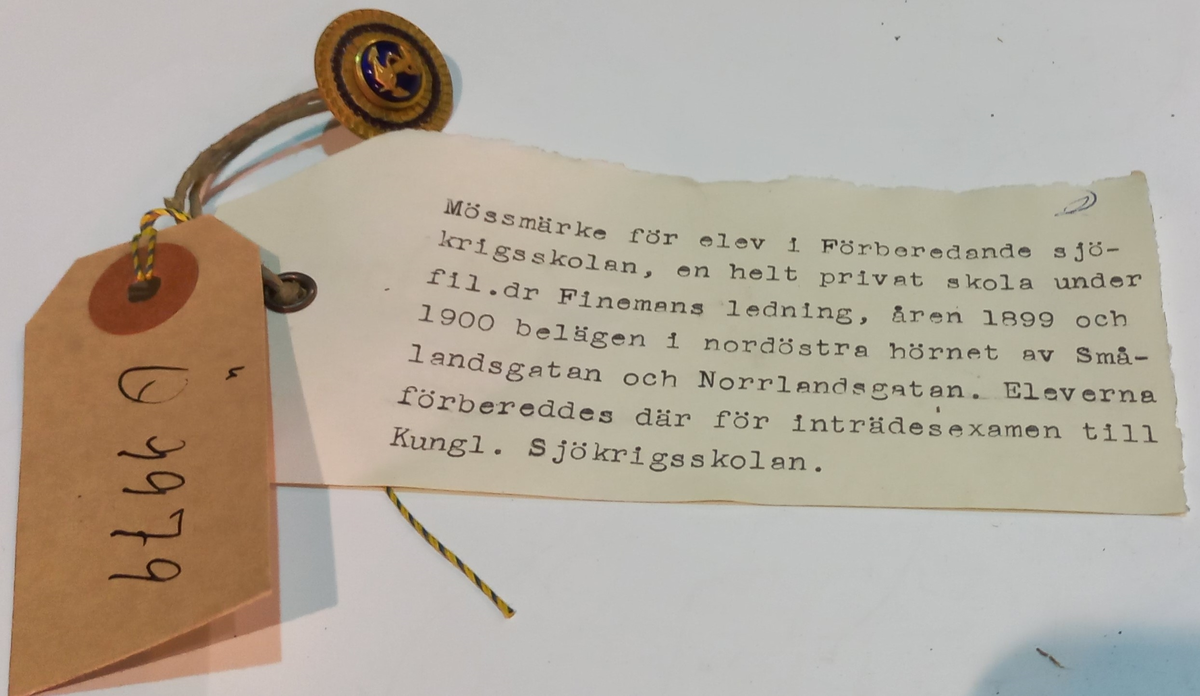 Mössmärke för elev i Förberedande sjö-
krigsskolan, en helt privat skola under
fil.dr Finemans ledning, åren 1899 och
1900 belägen i nordöstra hörnet av Små-
landsgatan och Norrlandsgatan. Eleverna
förbereddes där för inträdesexamen till
Kungl. Sjökrigsskolan.